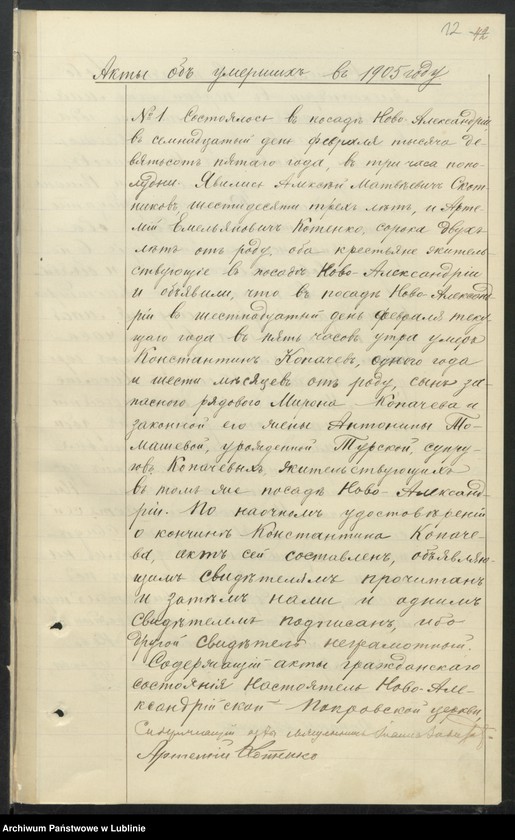 12 42
Акты объ умершихъ въ 1905 году
№ 1 Состоялось въ посадѣ Ново-Александріи
въ семнадцатый день февраля тысяча де-
вятьсотъ пятаго года, въ три часа попо-
лудни. Явились Алексѣй Матвѣевичъ Скот-
никовъ, шестидесяти трехъ лѣтъ, и Арте-
мій Емельяновичъ Котенко, сорока двухъ
лѣтъ отъ роду, оба крестьяне житель-
ствующіе въ посадѣ Ново-Александріи
и объявили, что въ посадѣ Ново-Александ-
ріи въ шестнадцатый день февраля теку-
щаго года въ пять часовъ утра умеръ
Константинъ Копачевъ, одного года
и шести мѣсяцевъ отъ роду, сынъ за-
паснаго рядового Мирона Копачева и
законной его жены Антонины То-
машевой, урожденной Турской, супру-
говъ Копачевыхъ, жительствующихъ
въ томъ же посадѣ Ново-Александ-
ріи. По наочномъ удостовѣреніи
о кончинѣ Константина Копаче-
ва, актъ сей составленъ, объявляю-
щимъ свидѣтелямъ прочитанъ
и затѣмъ нами и однимъ
свидѣтелемъ подписанъ, ибо
другой свидѣтель неграмотный.
Содержащій акты гражданскаго
состоянія Настоятель Ново-Але-
ксандрійской Покровской церкви,
Священникъ
Артемій Котенко
Archiwum Państwowe w Lublinie